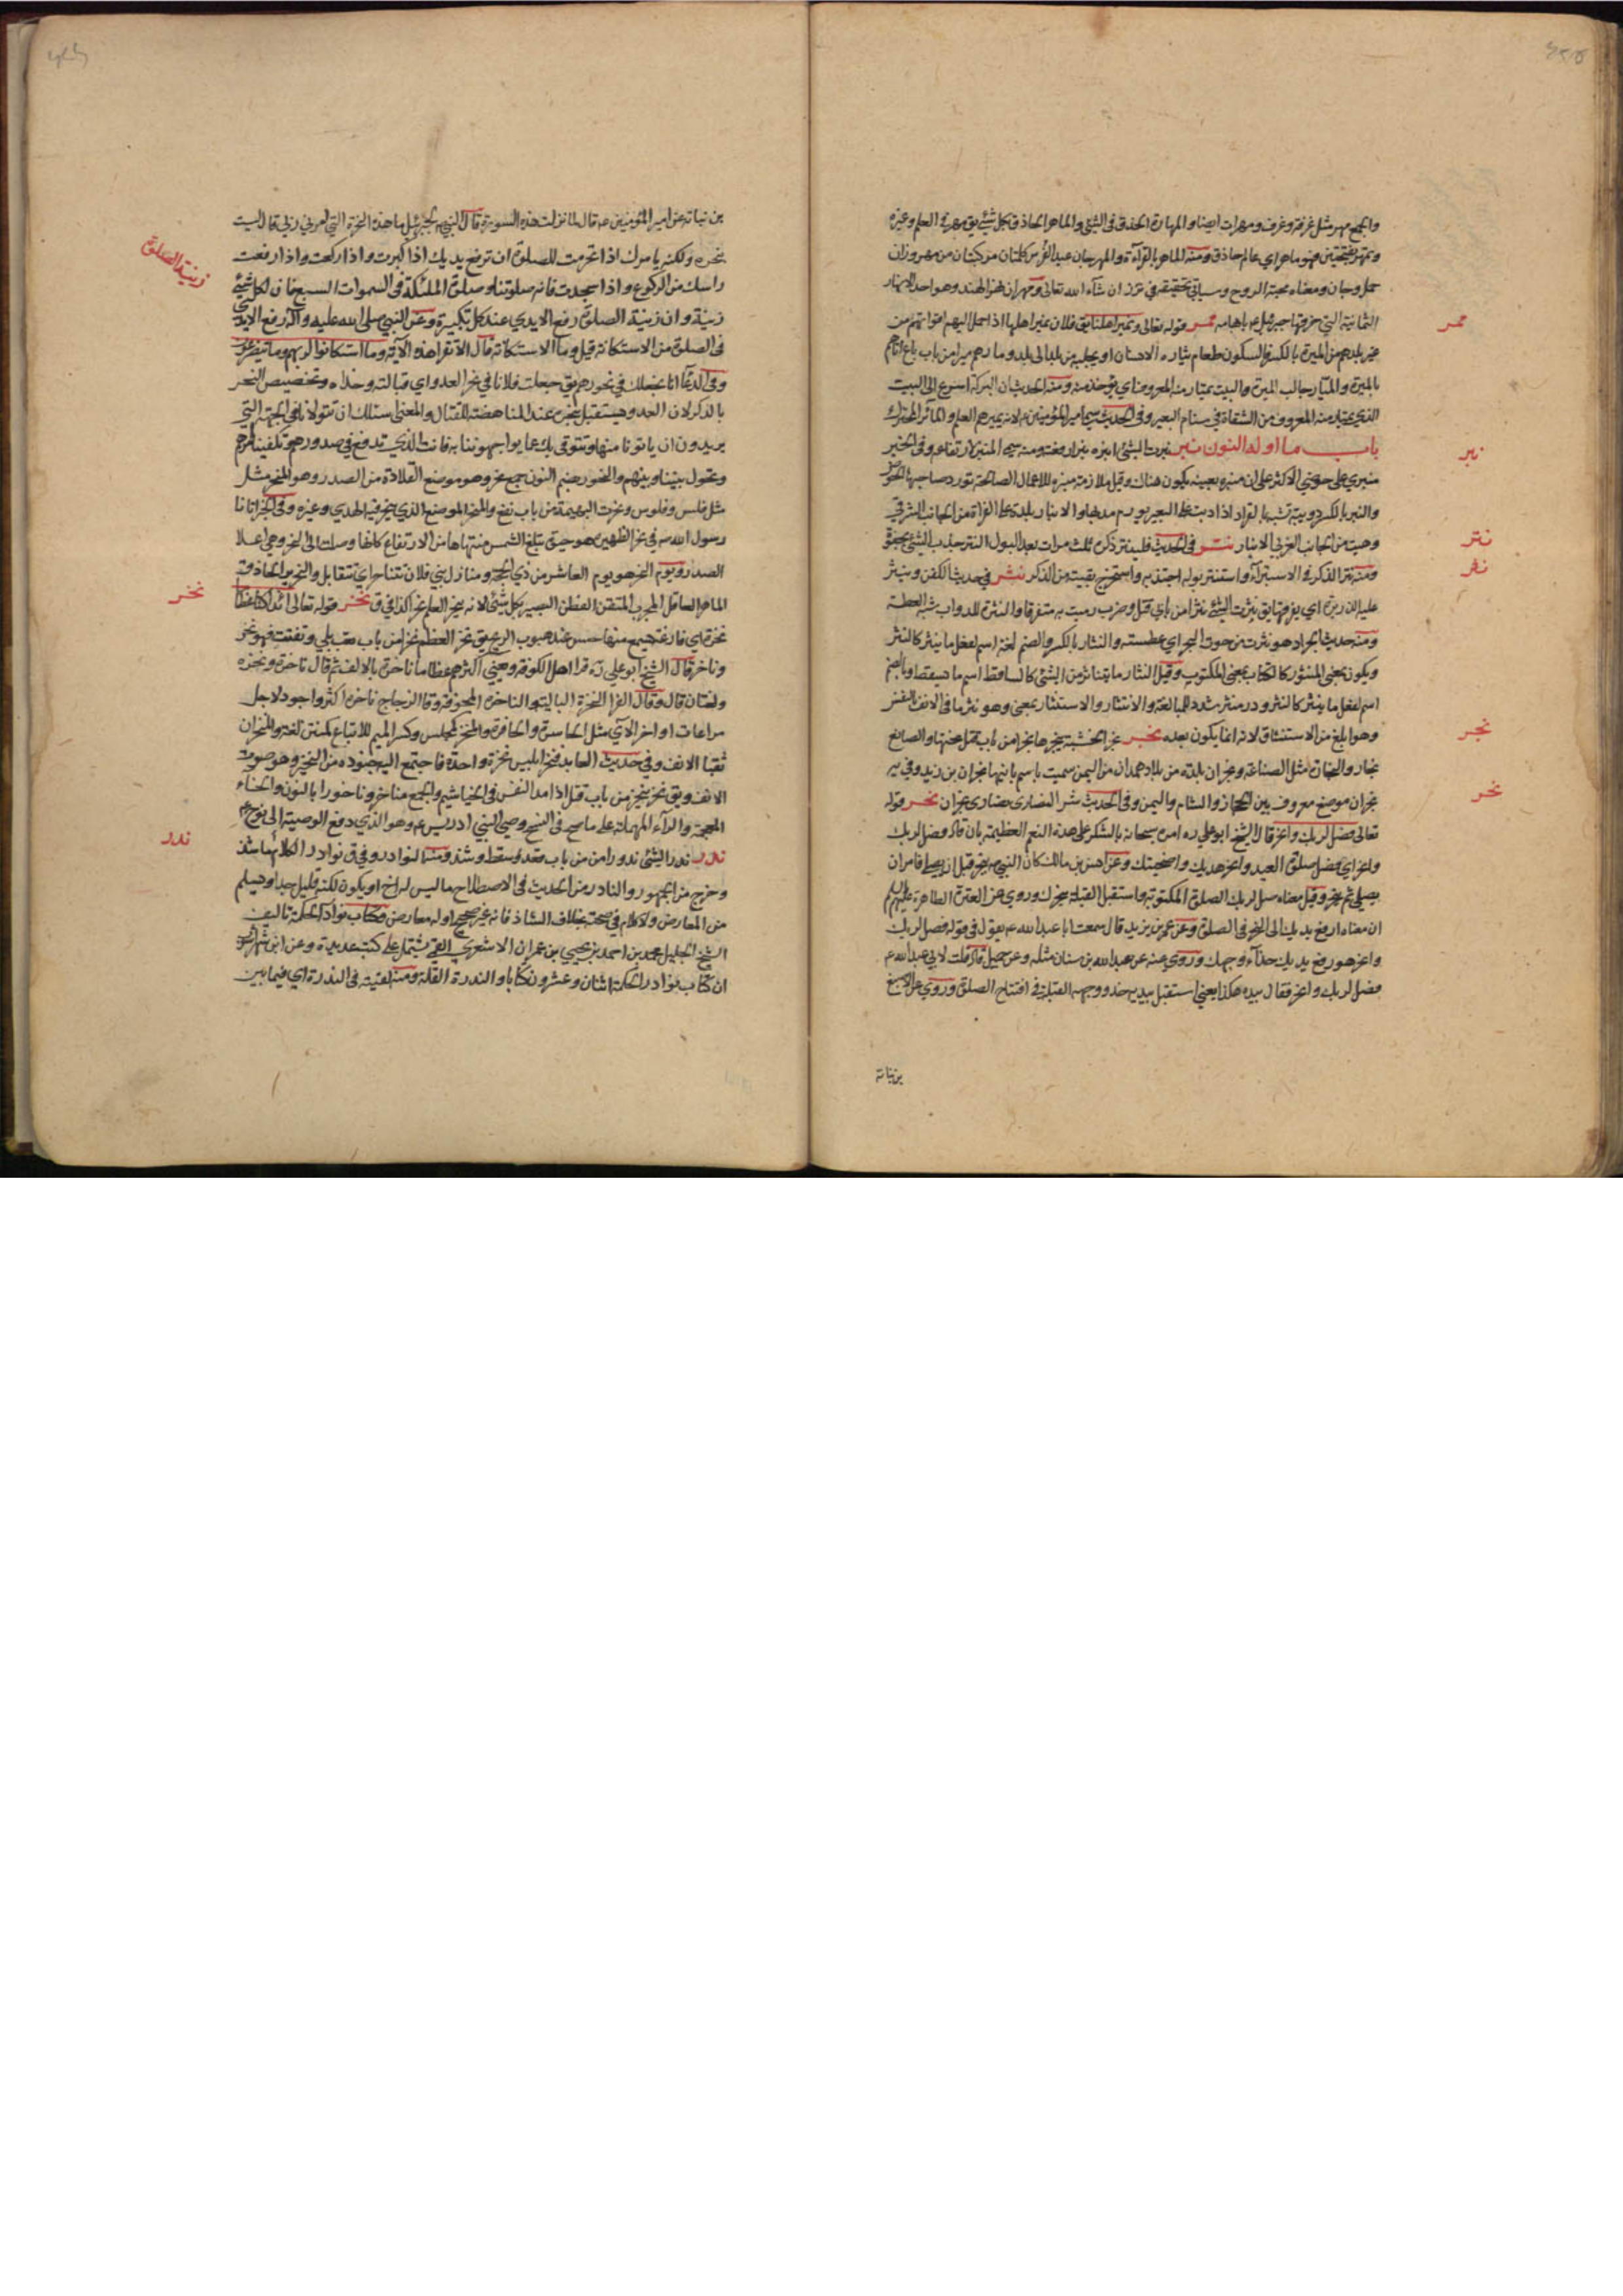 والجمع مهر مثل غرفة وغرف ومهرات ايضا والمهارة الحذق في الشئ والماهر الحاذق بكل شئ يق مهر في العلم وغيره
ومنه الماهر بالقرآءة والمهرجان عيد الفرس كلمتان مركبتان من مهر وزان
حمل وجان ومعناه محبة الروح وسياتي تحقيقه في نرز ان شآء الله تعالى ومهران نهر الهند وهو احد الانهار
الثمانية التي خرقها جبرئيل ع بابهامه مير قوله تعالى ونمير اهلنا يق فلان يمير اهله اذا حمل اليهم اقواتهم من
غير بلدهم من الميرة بالكسر فالسكون طعام يمتاره الانسان اي يجلبه من بلد الى بلد ومارهم ميرا من باب باع اتاهم
بالميرة والميار جالب الميرة والبيت يمتار منه المعروف اي يؤخذ منه ومنه الحديث ان البركة اسرع الى البيت
الذي يمتار منه المعروف من الشفرة في سنام البعير وفي الحديث سمي امير المؤمنين ع لانه يميرهم العلم
باب ما اوله النون نبر نبرت الشئ انبره نبرا رفعته ومنه سمي المنبر لارتفاعه وفي الخبر
منبري على حوضي الاكثر على ان منبره بعينه يكون هناك وقيل ملازمة منبره للاعمال الصالحة تورد صاحبها الحوض
والنبر بالكسر دويبة شبيهة بالقراد اذا دبت على البعير تورم مدبها والانبار بلدة على الفراة من الجانب الشرقي
وهيت من الجانب الغربي الانبار نتر في الحديث فلينتر ذكره ثلث مرات بعد البول النتر جذب الشئ بجفوة
ومنه نتر الذكر في الاستبرآء واستنتر بوله اجتذبه واستخرج بقيته من الذكر نثر في حديث الكفن وينثر
عليه الذريرة اي يفرقها يق نثرت الشئ نثرا من بابي قتل وضرب رميت به متفرقا والنثرة للدواب شبه العطسة
ومنه حديث الجراد هو نثرت من حوت البحر اي عطسته والنثار بالكسر والضم لغة اسم لفعل ما ينثر كالنثر
ويكون بمعنى المنثور كالكتاب بمعنى المكتوب وقيل النثار ما يتناثر من الشئ كالساقط اسم ما يسقط وبالضم
اسم لفعل ما ينثر كالنثر ودر منثر شدد للمبالغة والانتثار والاستنثار بمعنى وهو نثر ما في الانف بالنفس
وهو ابلغ من الاستنشاق لانه انما يكون بعده نجر نجر الخشبة ينجرها نجرا من باب قتل نحتها والصانع
نجار والنجارة مثل الصناعة ونجران بلدة من بلاد همدان من اليمن سميت باسم بانيها نجران بن زيد وفي ير
نجران موضع معروف بين الحجاز والشام واليمن وفي الحديث شر النصارى نصارى نجران نحر قوله
تعالى فصل لربك وانحر قال الشيخ ابو علي ره امره سبحانه بالشكر على هذه النعم العظيمة بان قال فصل لربك
وانحر اي فصل صلوة العيد وانحر هديك واضحيتك وعن انس بن مالك كان النبي ص ينحر قبل ان يصلي فامر ان
يصلي ثم ينحر وقيل معناه صل لربك الصلوة المكتوبة واستقبل القبلة بنحرك وروي عن العترة الطاهرة عليهم السلام
ان معناه ارفع يديك الى النحر في الصلوة وعن عمر بن يزيد قال سمعت ابا عبد الله ع يقول في قوله فصل لربك
وانحر هو رفع يديك حذآء وجهك وروي عنه عن عبد الله بن سنان مثله وعن جميل قال قلت لابي عبد الله ع
فصل لربك وانحر فقال بيده هكذا يعني استقبل بيديه حذو وجهه القبلة في افتتاح الصلوة وروي عن الاصبغ
بن نباتة
مير
نبر
نتر
نثر
نجر
نحر
بن نباتة عن امير المؤمنين ع قال لما نزلت هذه السورة قال النبي ص لجبرئيل ما هذه النحرة التي امرني ربي قال ليست
بنحره ولكنه يامرك اذا تحرمت للصلوة ان ترفع يديك اذا كبرت واذا ركعت واذا رفعت
راسك من الركوع واذا سجدت فانه صلوتنا وصلوة الملئكة في السموات السبع فان لكل شئ
زينة وان زينة الصلوة رفع الايدي عند كل تكبيرة وعن النبي صلى الله عليه وآله رفع الايدي
في الصلوة من الاستكانة قيل وما الاستكانة قال الا تقرا هذه الآية وما استكانوا لربهم وما يتضرعون
وفي الدعآ انا نجعلك في نحورهم يق جعلت فلانا في نحر العدو اي قبالته وحذاه وتخصيص النحر
بالذكر لان العدو يستقبل بنحره عند المناهضة للقتال والمعنى اسئلك ان تتولانا في الجهة التي
يريدون ان ياتونا منها ونتوقى بك عما يواجهوننا به فانت الذي تدفع في صدورهم وتكفينا امرهم
وتحول بيننا وبينهم والنحور بضم النون جمع نحر وهو موضع القلادة من الصدر وهو المنحر مثل
مثل فلس وفلوس ونحرت البهيمة من باب نفع والمنحر الموضع الذي ينحر فيه الهدي وغيره وفي الخبر اتانا
رسول الله ص في نحر الظهيرة هو حين تبلغ الشمس منتهاها من الارتفاع كانها وصلت الى النحر وهي اعلا
الصدر ويوم النحر هو يوم العاشر من ذي الحجة ومنازل بني فلان تتناحر اي تتقابل والنحرير الحاذق
الماهر العاقل المجرب المتقن الفطن البصير بكل شئ لانه ينحر العلم نحرا كذا في ق نخر قوله تعالى ائذا كنا عظاما
نخرة اي فارغة يجئ منها حس عند هبوب الريح يق نخر العظم نخرا من باب تعب بلي وتفتت فهو نخر
وناخر قال الشيخ ابو علي ره قرا اهل الكوفة وعيى اكثرهم عظاما ناخرة بالالف ثم قال ناخرة ونخرة
ولغتان قال وقال الفرا النخرة البالية والناخرة المجوفة وقال الزجاج ناخرة اكثر واجود لاجل
مراعات اواخر الآي مثل الحاسرة والحافرة والمنخر كمجلس وكسر الميم للاتباع كمنتن لغة والمنخران
ثقبا الانف وفي حديث العابد فنخر ابليس نخرة واحدة فاجتمع اليه جنوده من النخير وهو صوت
الانف ويق نخر ينخر من باب قتل اذا مد النفس في الخياشيم والجمع مناخر وناخورا بالنون والخآء
المعجمة والرآء المهملة على ما صح في النسخ وصي النبي ادريس ع وهو الذي دفع الوصية الى نوح ع
ندر ندر الشئ ندورا من باب قعد سقط وشذ ومنه النوادر وفي ق نوادر الكلام ما شذ
وخرج من الجمهور والنادر من الحديث في الاصطلاح ما ليس له اخ او يكون لكنه قليل جدا ويسلم
من المعارض ولا كلام في صحته بخلاف الشاذ فانه غير صحيح او له معارض وكتاب نوادر الحكمة تاليف
الشيخ الجليل محمد بن احمد بن يحيى بن عمران الاشعري القمي يشتمل على كتب عديدة وعن ابن شهراشوب
ان كتاب نوادر الحكمة اثنان وعشرون كتابا والندرة القلة ومنه لقيته في الندرة اي فيما بين
زينة الصلوة
نخر
ندر